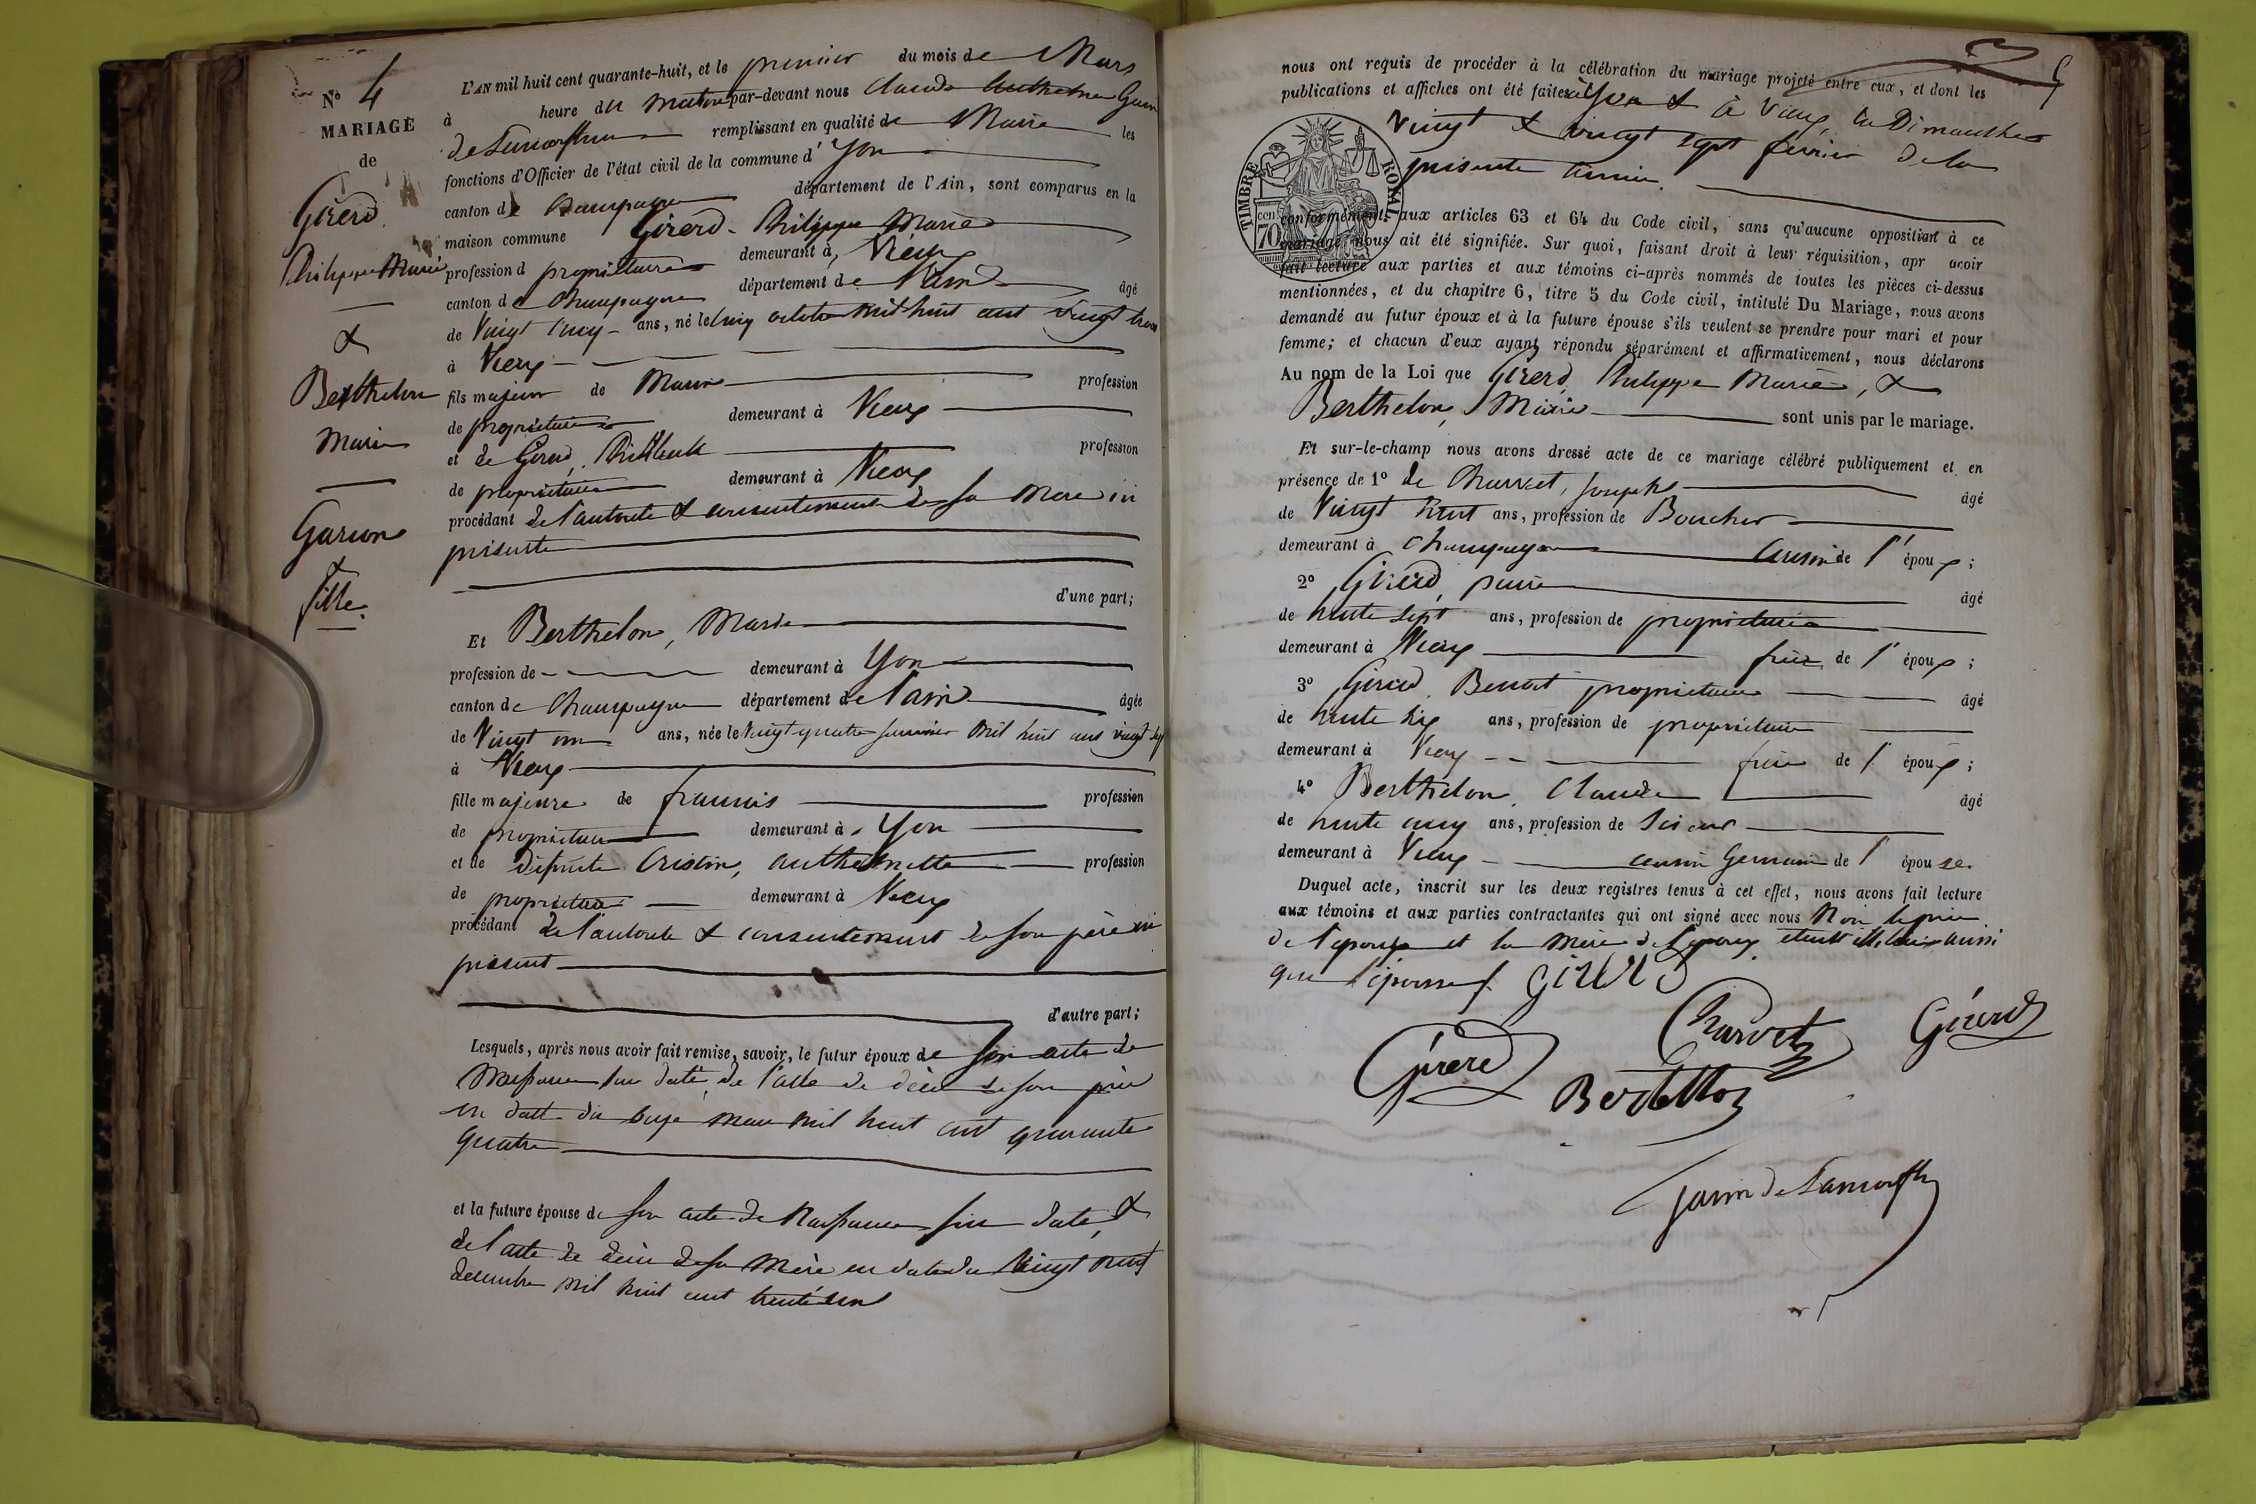 N° 4
MARIAGE
de
Girerd
Philippe Marie
&
Berthelon
Marie
Garçon
fille.
L'AN mil huit cent quarante-huit, et le premier du mois de Mars
à heure du matin par-devant nous Claude Anthelme Garin
de Lamorflan remplissant en qualité de Maire les
fonctions d'Officier de l'état civil de la commune d' Yon
canton de Champagne département de l'Ain, sont comparus en la
maison commune Girerd Philippe Marie
profession d propriétaire demeurant à Vieux
canton de Champagne département de l'ain âgé
de Vingt cinq ans, né le cinq octobre mil huit cent vingt trois
à Vieux
fils majeur de Marin profession
de propriétaire demeurant à Vieux
et de Girerd, profession
de propriétaire demeurant à Vieux
procédant de l'autorité & consentement de sa mère ici
présente
d'une part;
Et Berthelon, Marie
profession de demeurant à Yon
canton de Champagne département de l'ain âgée
de Vingt un ans, née le Vingt quatre janvier mil huit cent vingt sept
à Vieux
fille majeure de françois profession
de propriétaire demeurant à Yon
et de défunte Cristin, anthelmette profession
de propriétaire demeurant à Vieux
procédant de l'autorité & consentement de son père ici
présent
d'autre part;
Lesquels, après nous avoir fait remise, savoir, le futur époux de son acte de
Naissance sus daté, de l'acte de décès de son père
en date du onze mars mil huit cent quarante
quatre
et la future épouse de son acte de Naissance sus daté, &
de l'acte de décès de sa Mère en date du Vingt neuf
décembre mil huit cent trente un
nous ont requis de procéder à la célébration du mariage projeté entre eux, et dont les
publications et affiches ont été faites à Yon & à Vieux, les Dimanches
Vingt & vingt sept février de la
présente année.
TIMBRE ROYAL
70 cen
conformément aux articles 63 et 64 du Code civil, sans qu'aucune opposition à ce
mariage nous ait été signifiée. Sur quoi, faisant droit à leur réquisition, apr avoir
fait lecture aux parties et aux témoins ci-après nommés de toutes les pièces ci-dessus
mentionnées, et du chapitre 6, titre 5 du Code civil, intitulé Du Mariage, nous avons
demandé au futur époux et à la future épouse s'ils veulent se prendre pour mari et pour
femme; et chacun d'eux ayant répondu séparément et affirmativement, nous déclarons
Au nom de la Loi que Girerd, Philippe Marie, &
Berthelon, Marie sont unis par le mariage.
Et sur-le-champ nous avons dressé acte de ce mariage célébré publiquement et en
présence de 1° de Charvet, joseph âgé
de Vingt huit ans, profession de Boucher
demeurant à Champagne cousin de l' époux;
2° Girerd, pierre âgé
de trente sept ans, profession de propriétaire
demeurant à Vieux frère de l' époux;
3° Girerd, Benoit propriétaire âgé
de trente six ans, profession de propriétaire
demeurant à Vieux frère de l' époux;
4° Berthelon, Claude âgé
de trente cinq ans, profession de Scieur
demeurant à Vieux cousin Germain de l' épouse.
Duquel acte, inscrit sur les deux registres tenus à cet effet, nous avons fait lecture
aux témoins et aux parties contractantes qui ont signé avec nous Non le père
de l'épouse et la mère de l'époux étant illitérés aussi
que l'épouse. Girerd
Girerd
Charvet
Girerd
Berthelon
Garin de Lamorflan